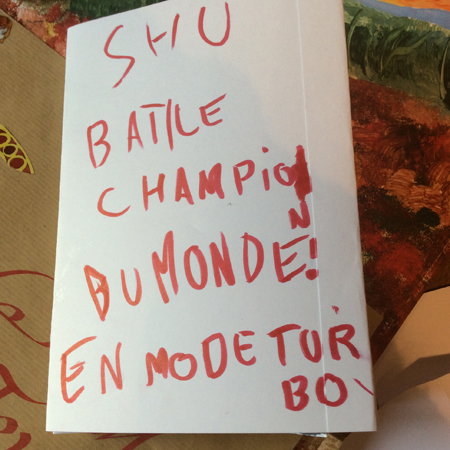 SHU
BATTLE
CHAMPION
DU MONDE!
EN MODE TUR
BO